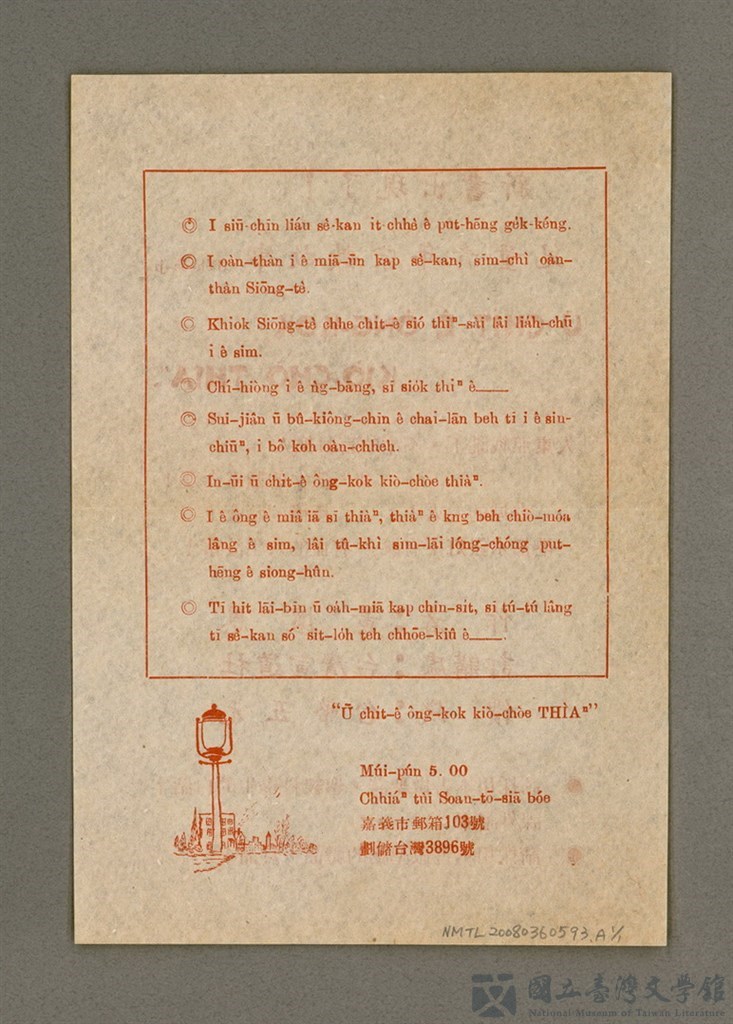 ◎ I siū-chīn liáu sè-kan it-chhè ê put-hēng ge̍k-kéng.
◎ I oàn-thàn i ê miā-ūn kap sè-kan, sīm-chì oàn-
thàn Siōng-tè.
◎ Khiok Siōng-tè chhe chit-ê sió thiⁿ-sài lâi lia̍h-chū
i ê sim.
◎ Chí-hiòng i ê ǹg-bāng, sī sio̍k thiⁿ ê____
◎ Sui-jiân ū bû-kiông-chīn ê chai-lān beh tī i ê sin-
chiūⁿ, i bô koh oàn-chheh.
◎ In-ūi ū chit-ê ông-kok kiò-chòe thiàⁿ.
◎ I ê ông ê miâ iā sī thiàⁿ, thiàⁿ ê kng beh chiò-móa
lâng ê sim, lâi tû-khì sim-lāi lóng-chóng put-
hēng ê siong-hûn.
◎ Tī hit lāi-bīn ū oa̍h-miā kap chin-sit, sī tú-tú lâng
tī sè-kan só͘ sit-lo̍h teh chhōe-kiû ê____.
"Ū chit-ê ông-kok kiò-chòe THÌAⁿ"
Múi-pún 5. 00
Chhiáⁿ tùi Soan-tō-siā bóe
嘉義市郵箱103號
劃儲台灣3896號
NMTL20080360593.A 1/1
國立臺灣文學館
National Museum of Taiwan Literature